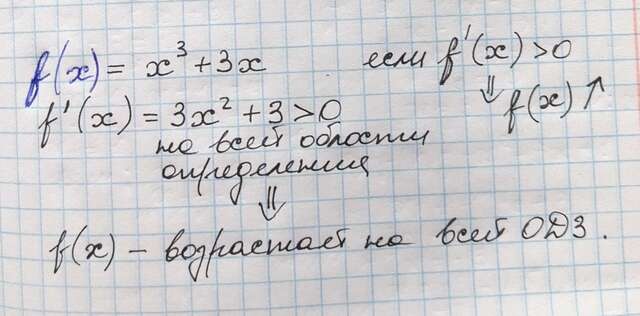 f(x) = x³ + 3x если f'(x) > 0
⇓ f(x) ↑
f'(x) = 3x² + 3 > 0
на всей области
определения
⇓
f(x) – возрастает на всей ОДЗ.